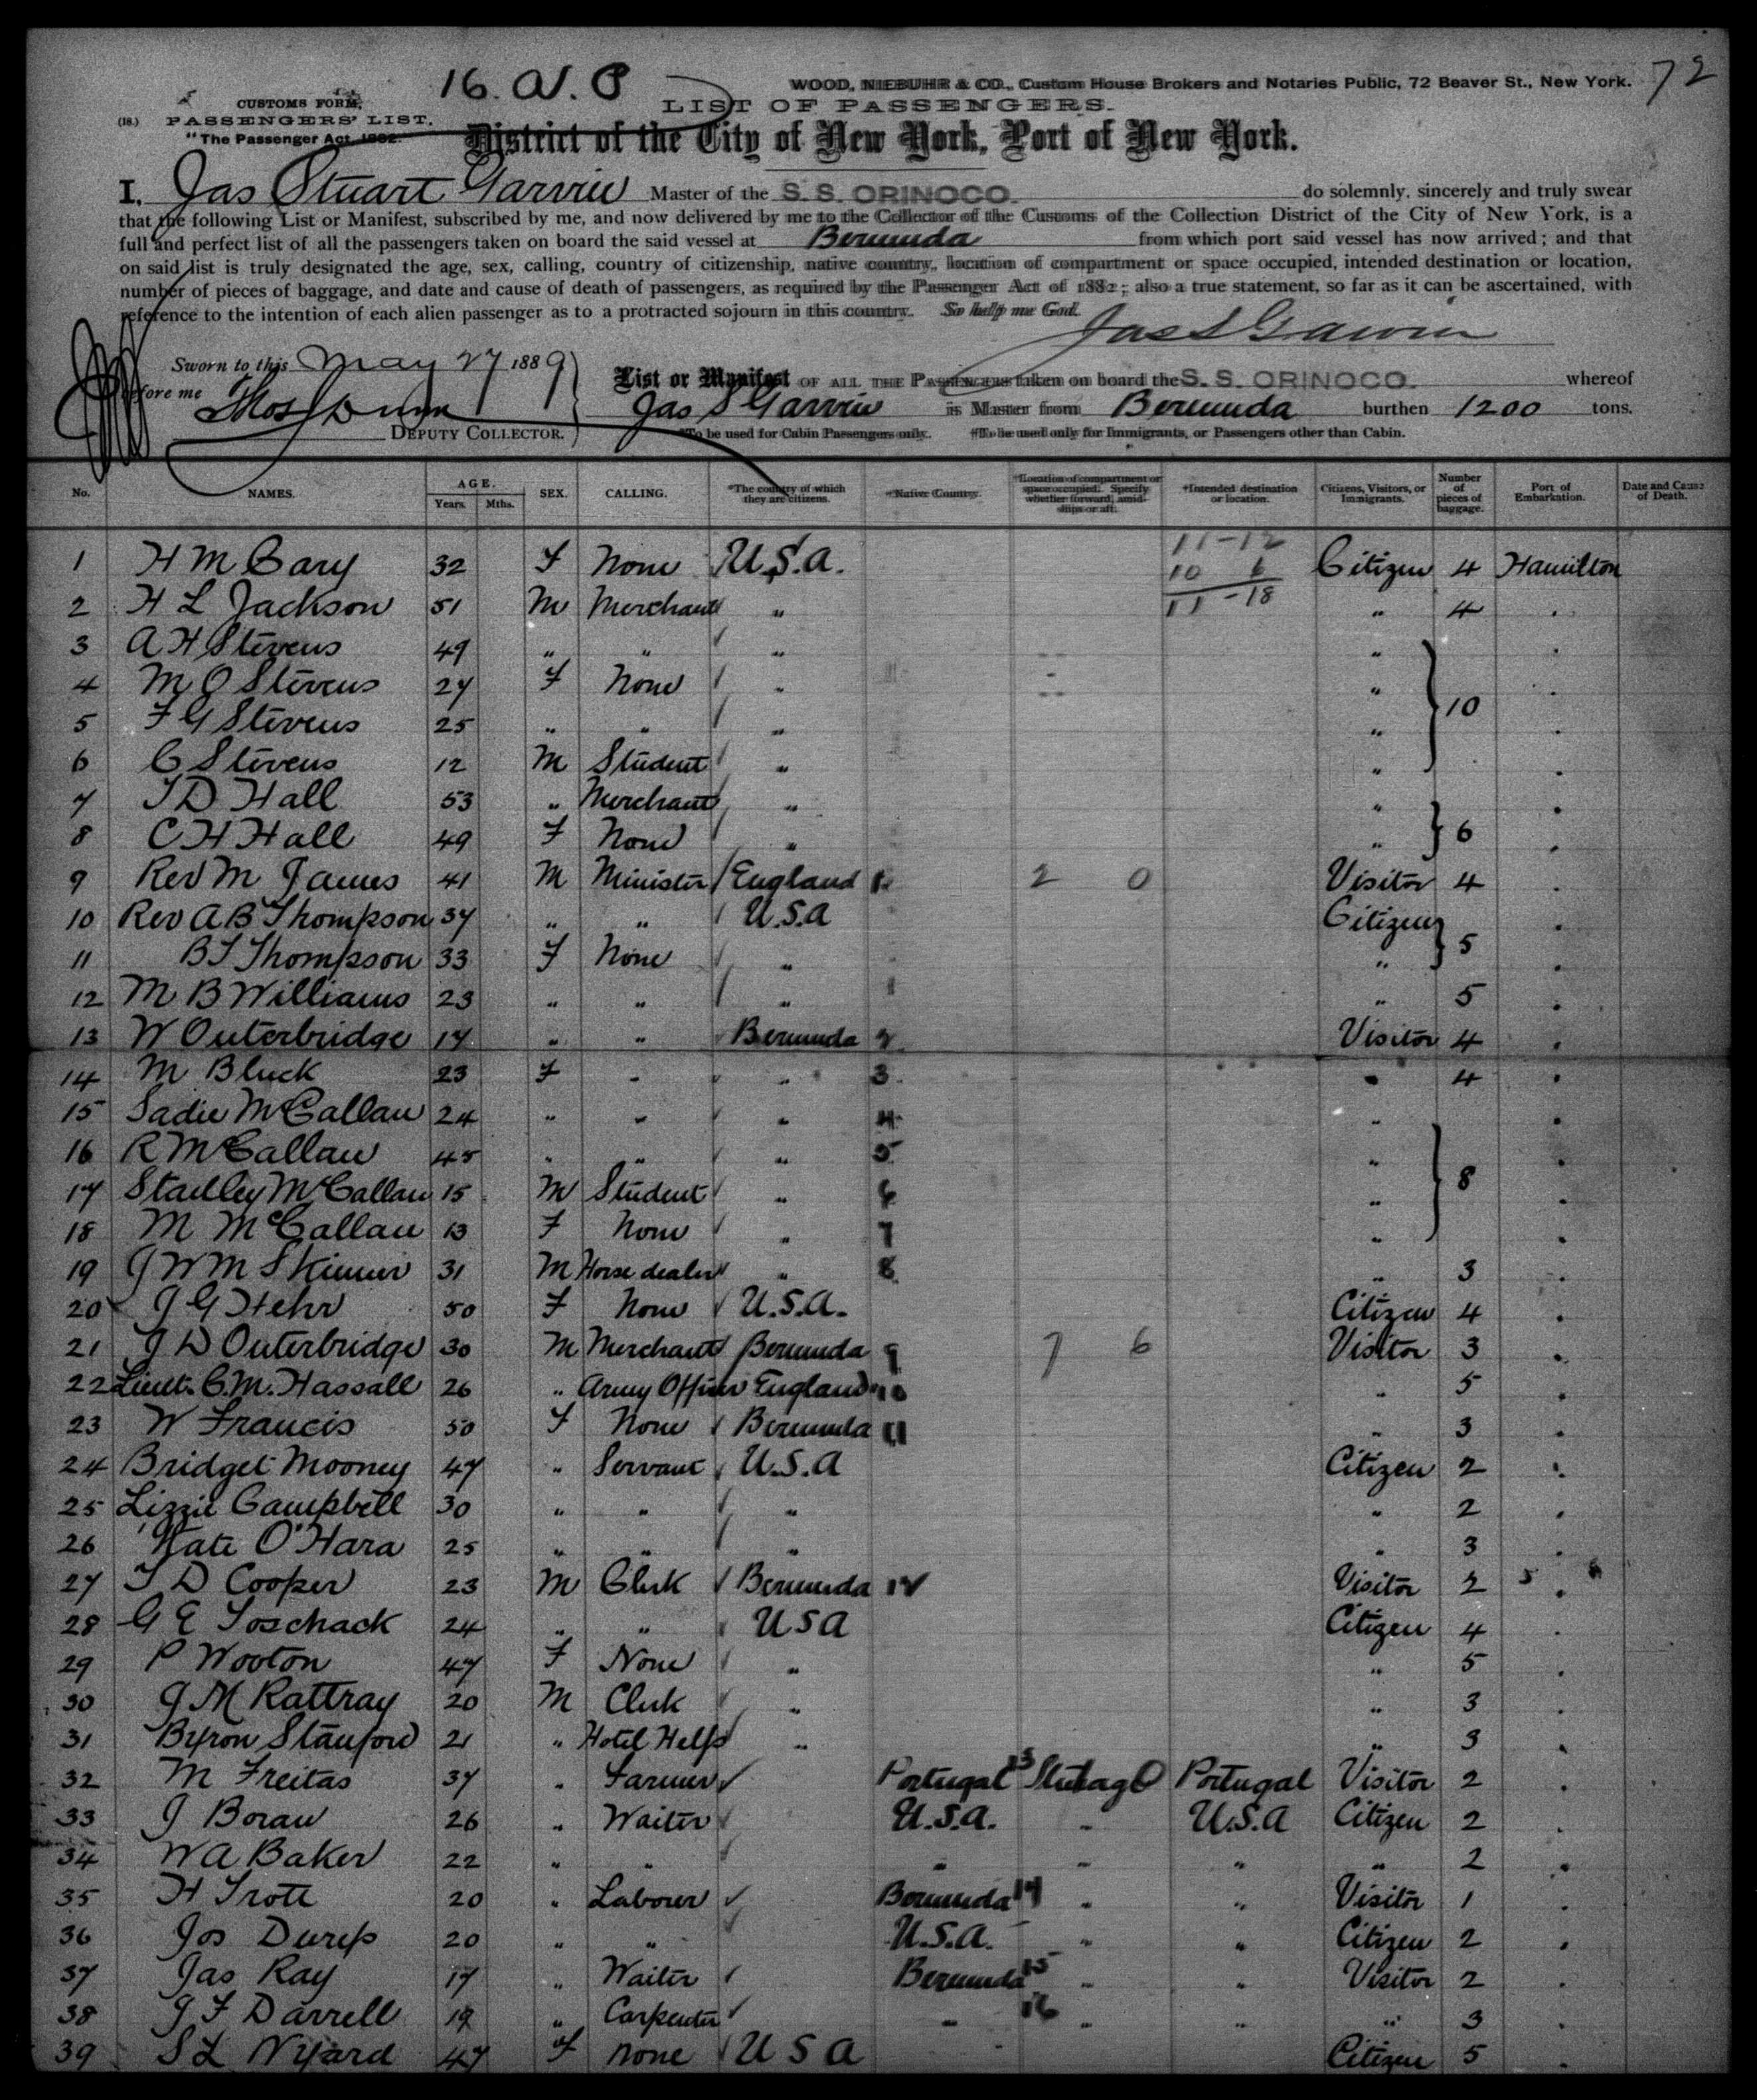 16. N. P
72
WOOD, NIEBUHR & CO., Custom House Brokers and Notaries Public, 72 Beaver St., New York.
CUSTOMS FORM,
(18.) PASSENGERS' LIST.
"The Passenger Act, 1882."
LIST OF PASSENGERS.
District of the City of New York, Port of New York.
I, Jas Stuart Garvin Master of the S. S. ORINOCO. do solemnly, sincerely and truly swear
that the following List or Manifest, subscribed by me, and now delivered by me to the Collector of the Customs of the Collection District of the City of New York, is a
full and perfect list of all the passengers taken on board the said vessel at Bermuda from which port said vessel has now arrived; and that
on said list is truly designated the age, sex, calling, country of citizenship, native country, location of compartment or space occupied, intended destination or location,
number of pieces of baggage, and date and cause of death of passengers, as required by the Passenger Act of 1882; also a true statement, so far as it can be ascertained, with
reference to the intention of each alien passenger as to a protracted sojourn in this country. So help me God.
Jas S Garvin
Sworn to this May 27 1889
before me
Thos Dunn
DEPUTY COLLECTOR.
List or Manifest OF ALL THE PASSENGERS taken on board the S. S. ORINOCO. whereof
Jas S Garvin is Master from Bermuda burthen 1200 tons.
*To be used for Cabin Passengers only. †To be used only for Immigrants, or Passengers other than Cabin.
No. NAMES. AGE. Years. Mths. SEX. CALLING. *The country of which they are citizens. †Native Country. †Location of compartment or space occupied. Specify whether forward, amidships or aft. †Intended destination or location. Citizens, Visitors, or Immigrants. Number of pieces of baggage. Port of Embarkation. Date and Cause of Death.
11-12
10 6
11-18
1 H M Cary 32 F None U.S.A. Citizen 4 Hamilton
2 H L Jackson 51 M Merchant " " 4 "
3 A H Stevens 49 " " " " "
4 M O Stevens 27 F None " " 10 "
5 F G Stevens 25 " " " " "
6 C Stevens 12 M Student " " "
7 T D Hall 53 " Merchant " " "
8 C H Hall 49 F None " " 6 "
9 Rev M James 41 M Minister England 1 2 0 Visitor 4 "
10 Rev A B Thompson 37 " " U.S.A Citizen "
11 B T Thompson 33 F None " " 5 "
12 M B Williams 23 " " " " 5 "
13 W Outerbridge 17 " " Bermuda 2 Visitor 4 "
14 M Bluck 23 F " " 3 " 4 "
15 Sadie McCallan 24 " " " 4 " "
16 R McCallan 45 " " " 5 " "
17 Stanley McCallan 15 M Student " 6 " 8 "
18 M McCallan 13 F None " 7 " "
19 J W M Skinner 31 M Horse dealer " 8 " 3 "
20 J G Hehr 50 F None U.S.A. Citizen 4 "
21 J D Outerbridge 30 M Merchant Bermuda 9 7 6 Visitor 3 "
22 Lieut. C.M. Hassall 26 " Army Officer England 10 " 5 "
23 W Francis 50 F None Bermuda 11 " 3 "
24 Bridget Mooney 47 " Servant U.S.A Citizen 2 "
25 Lizzie Campbell 30 " " " " 2 "
26 Kate O'Hara 25 " " " " 3 "
27 T D Cooper 23 M Clerk Bermuda 12 Visitor 2 "
28 G E Toschack 24 " " U S A Citizen 4 "
29 P Wooton 47 F None " " 5 "
30 J M Rattray 20 M Clerk " " 3 "
31 Byron Stanford 21 " Hotel Help " " 3 "
32 M Freitas 37 " Farmer Portugal 13 Steerage Portugal Visitor 2 "
33 J Boran 26 " Waiter U.S.A. " U.S.A Citizen 2 "
34 W A Baker 22 " " " " " " 2 "
35 H Trott 20 " Labourer Bermuda 14 " " Visitor 1 "
36 Jos 20 " " U.S.A. " " Citizen 2 "
37 Jas Ray 17 " Waiter Bermuda 15 " " Visitor 2 "
38 J F Darrell 19 " Carpenter " 16 " " " 3 "
39 S L Nyard 47 F None U S A Citizen 5 "